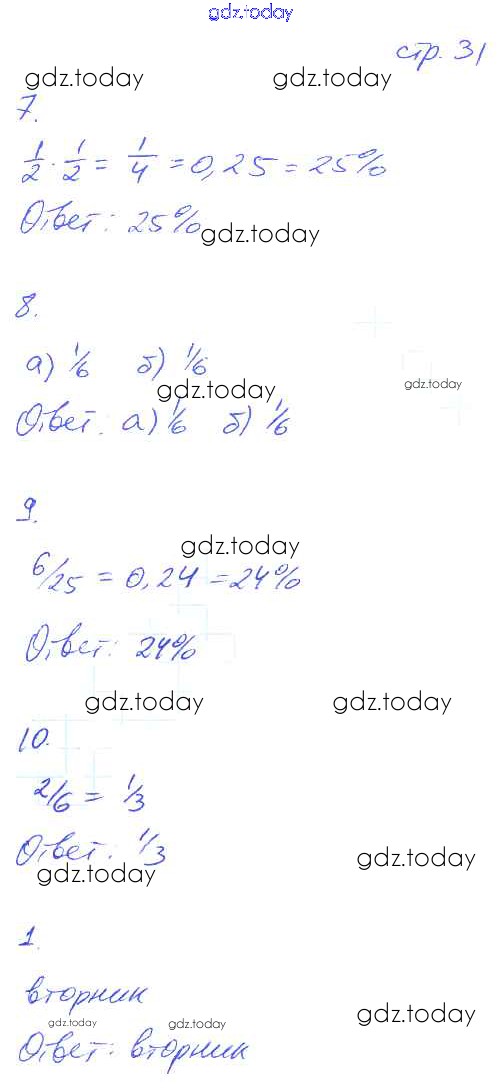 gdz.today
стр. 31
gdz.today gdz.today
7.
1/2 · 1/2 = 1/4 = 0,25 = 25%
Ответ: 25%
gdz.today
8.
а) 1/6 б) 1/6
gdz.today gdz.today
Ответ: а) 1/6 б) 1/6
9.
gdz.today
6/25 = 0,24 = 24%
Ответ: 24%
gdz.today gdz.today
10.
2/6 = 1/3
Ответ: 1/3
gdz.today
gdz.today
1.
вторник
gdz.today
gdz.today gdz.today
Ответ: вторник